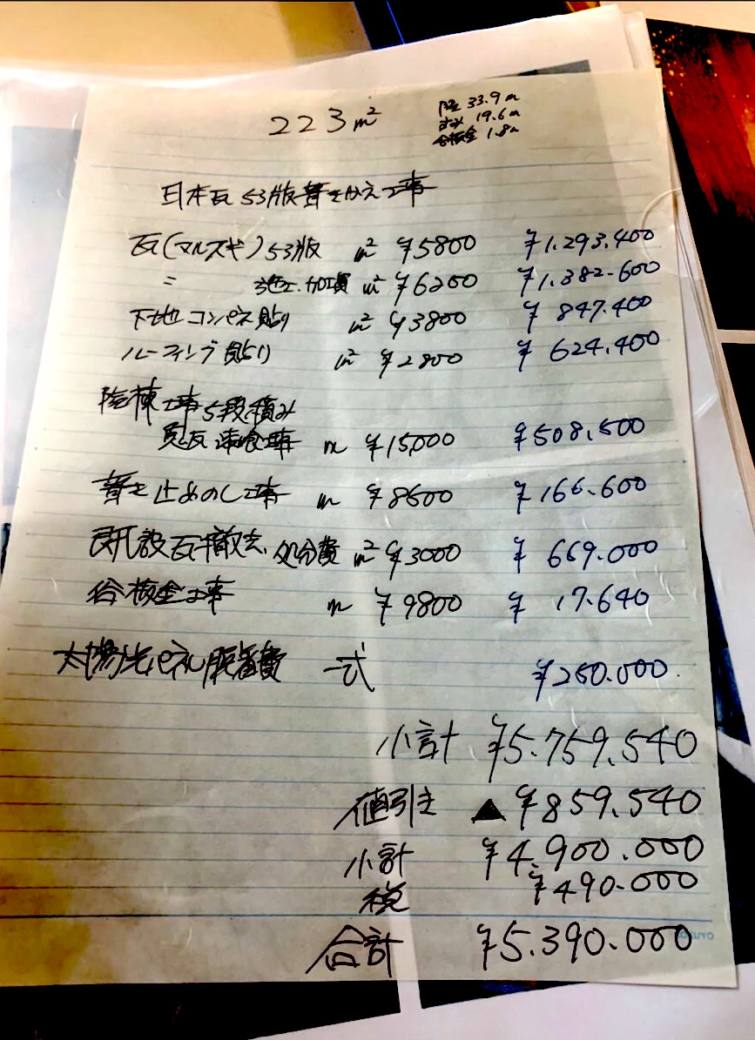 223㎡
陸 33.9m
すみ 19.6m
谷板金 1.8m
日本瓦 53版葺きかえ工事
瓦(マルスギ)53版 ㎡ ¥5800 ¥1.293.400
〃 施工.加工費 ㎡ ¥6200 ¥1.382.600
下地コンパネ貼り ㎡ ¥3800 ¥847.400
ルーフィング貼り ㎡ ¥2800 ¥624.400
陸棟工事5段積み
面瓦漆喰工事 m ¥15,000 ¥508.500
葺き止めのし工事 m ¥8500 ¥166.600
既設瓦撤去.処分費 ㎡ ¥3000 ¥669.000
谷板金工事 m ¥9800 ¥17.640
太陽光パネル脱着費 一式 ¥250.000.
小計 ¥5.759.540
値引き ▲ ¥859.540
小計 ¥4.900.000
税 ¥490.000
合計 ¥5.390.000